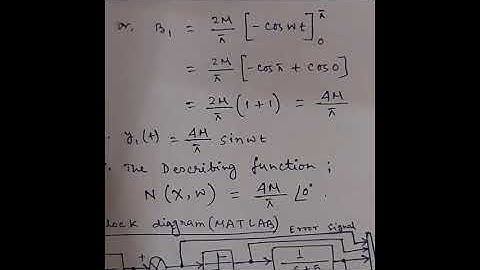 or, B₁ = 2M/π [-cos wt]₀^π
= 2M/π [-cos π + cos 0]
= 2M/π (1+1) = 4M/π
y₁(t) = 4M/π sin wt
The Describing function ;
N(X, w) = 4M/π ∠0°.
lock diagram (MATLAB) Error Signal
+
1